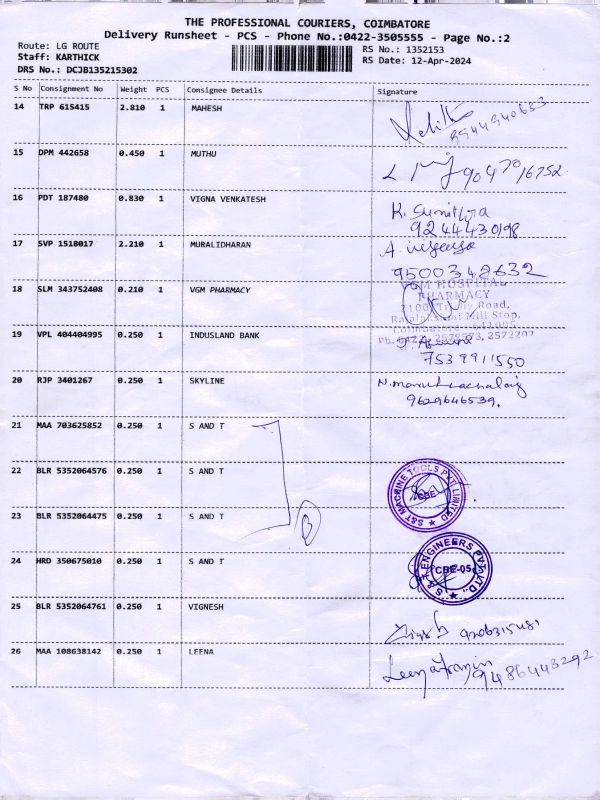 THE PROFESSIONAL COURIERS, COIMBATORE
Delivery Runsheet - PCS - Phone No.:0422-3505555 - Page No.:2
Route: LG ROUTE
RS No.: 1352153
Staff: KARTHICK
RS Date: 12-Apr-2024
DRS No.: DCJB135215302
S No Consignment No Weight PCS Consignee Details Signature
14 TRP 615415 2.810 1 MAHESH
9944940633
15 DPM 442658 0.450 1 MUTHU
16 PDT 187480 0.830 1 VIGNA VENKATESH K. Sunithra
9244430198
17 SVP 1518017 2.210 1 MURALIDHARAN A.
9500342632
18 SLM 343752408 0.210 1 VGM PHARMACY
VGM HOSPITAL
PHARMACY
Road,
Mill Stop,
19 VPL 404404995 0.250 1 INDUSLAND BANK
7539911550
20 RJP 3401267 0.250 1 SKYLINE
9629646539.
21 MAA 703625852 0.250 1 S AND T
22 BLR 5352064576 0.250 1 S AND T
S&T MACHINE TOOLS PVT LIMITED
CBE
23 BLR 5352064475 0.250 1 S AND T
24 HRD 350675010 0.250 1 S AND T
S & T ENGINEERS PVT LTD.,
CBE-05
25 BLR 5352064761 0.250 1 VIGNESH
26 MAA 108638142 0.250 1 LEENA
9486443292